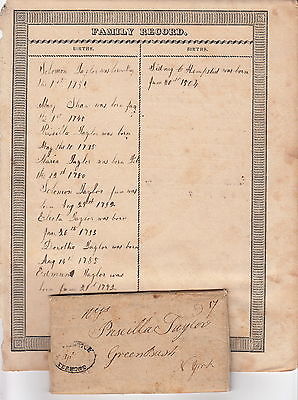 FAMILY RECORD.
BIRTHS.
Solomon Taylor was born
the 1st 1751
Mary Shaw was born
the 1st 1748
Priscilla Taylor was born
May the 10 1775
Taylor was born
the 12th 1780
Solomon Taylor Junr was
born Aug 25th 1782
Electa Taylor was born
June 26th 1793
Dorothy Taylor was born
Aug 14th 1785
Edmund Taylor was
born June 21st 1792
BIRTHS.
Sidney C Hempsted was born
June 20th 1804
Miss
Priscilla Taylor
Greenbush
N York